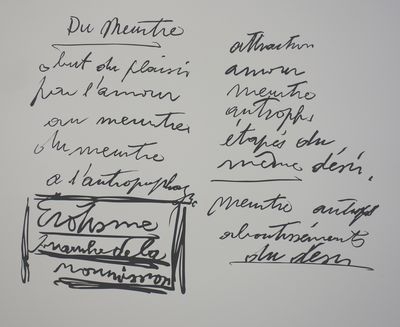 Du Meurtre
but du plaisir
par l'amour
au meurtre
du meurtre
a l'antropophagie
Érotisme
branche de la
nourrisson
attraction
amour
meurtre
antropph.
étapes du
même désir.
meurtre antroph
aboutissements
du désir